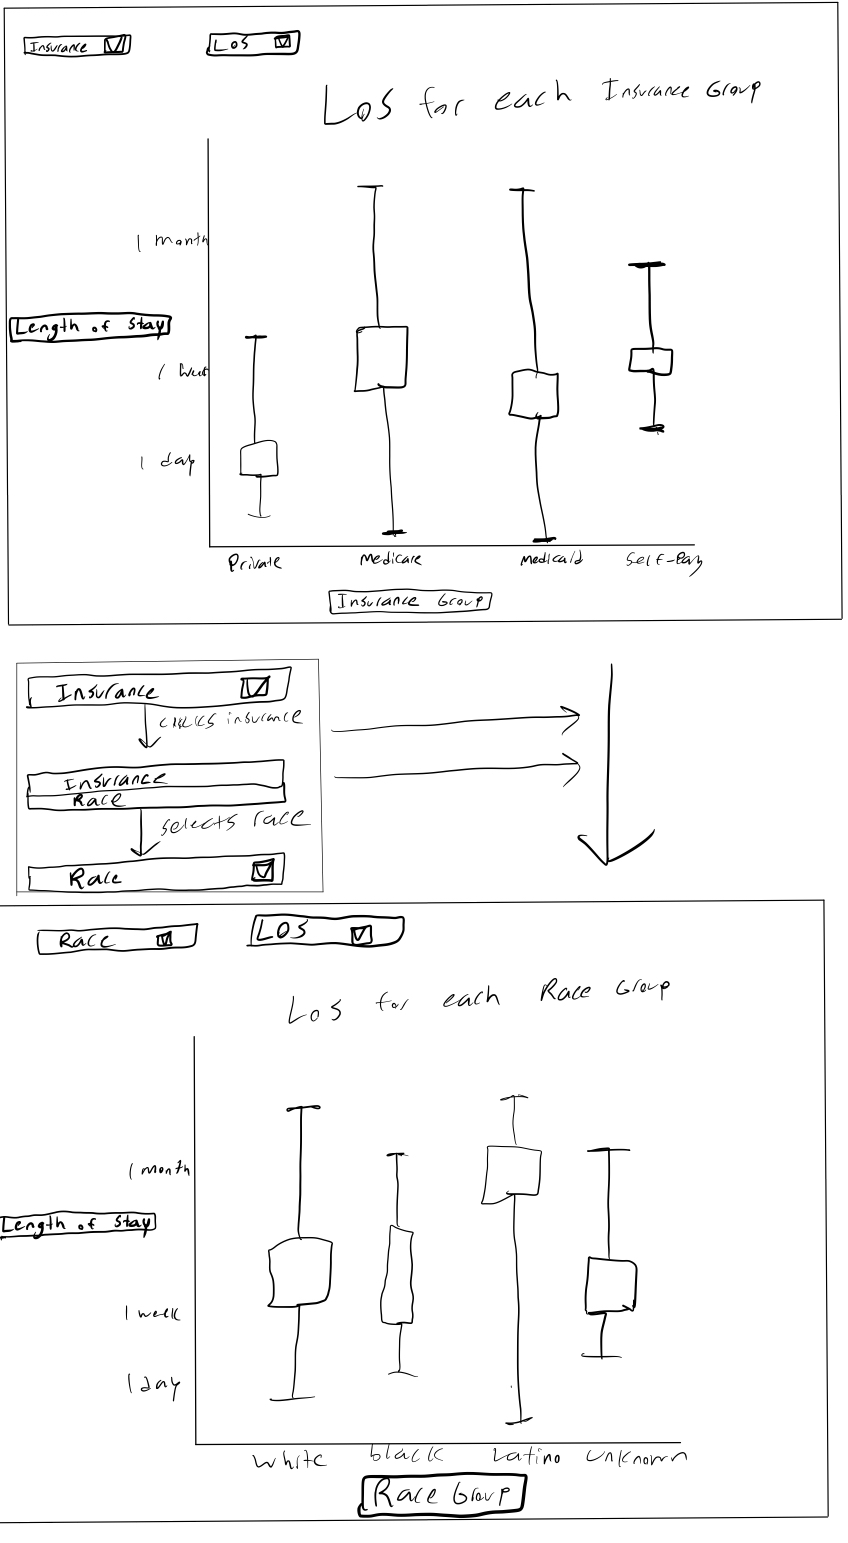 Insurance
LOS
LOS for each Insurance Group
1 month
Length of Stay
1 week
1 day
Private Medicare Medicaid Self-Pay
Insurance Group
Insurance
clicks insurance
Insurance
Race
selects race
Race
Race
LOS
LOS for each Race Group
1 month
Length of Stay
1 week
1 day
White black Latino Unknown
Race Group